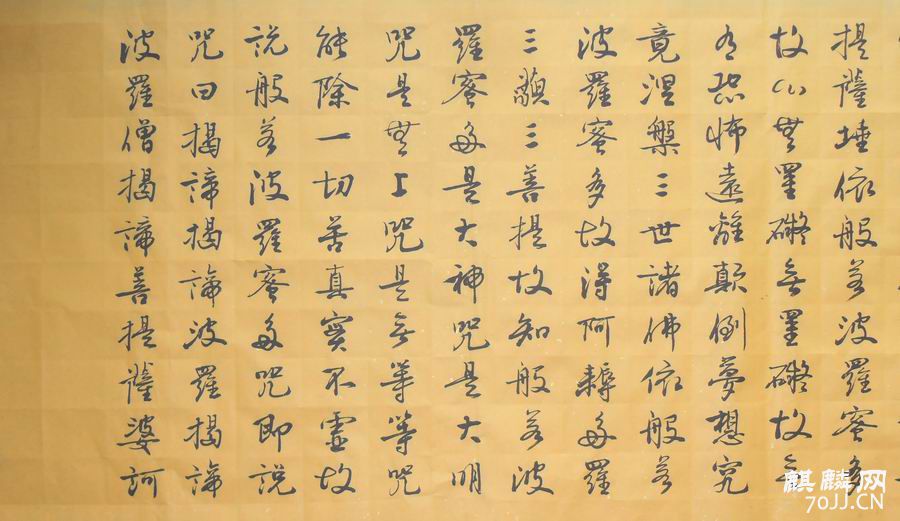 提薩埵依般若波羅蜜多
故心無罣礙無罣礙故無
有恐怖遠離顛倒夢想究
竟涅槃三世諸佛依般若
波羅蜜多故得阿耨多羅
三藐三菩提故知般若波
羅蜜多是大神咒是大明
咒是無上咒是無等等咒
能除一切苦真實不虛故
說般若波羅蜜多咒即說
咒曰揭諦揭諦波羅揭諦
波羅僧揭諦菩提薩婆訶
麒麟网
70JJ.CN